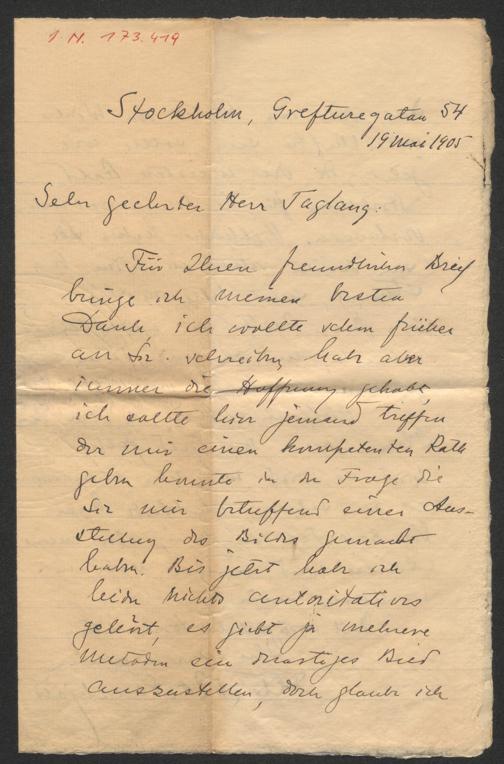 I. N. 173.419
Stockholm, Grefturegatan 54
19 Mai 1905
Sehr geehrter Herr Taglang.
Für Ihren freundlichen Brief
bringe ich meinen besten
Dank ich wollte schon früher
an Sie schreiben, habe aber
immer die Hoffnung gehabt,
ich sollte hier jemand treffen
der mir einen kompetenten Rath
geben konnte in der Frage die
Sie mir betreffend einer Aus-
stellung des Bildes gemacht
haben. Bis jetzt habe ich
leider nichts autoritatives
gehört, es giebt ja mehrere
Metoden ein derartiges Bild
auszustellen, doch glaube ich